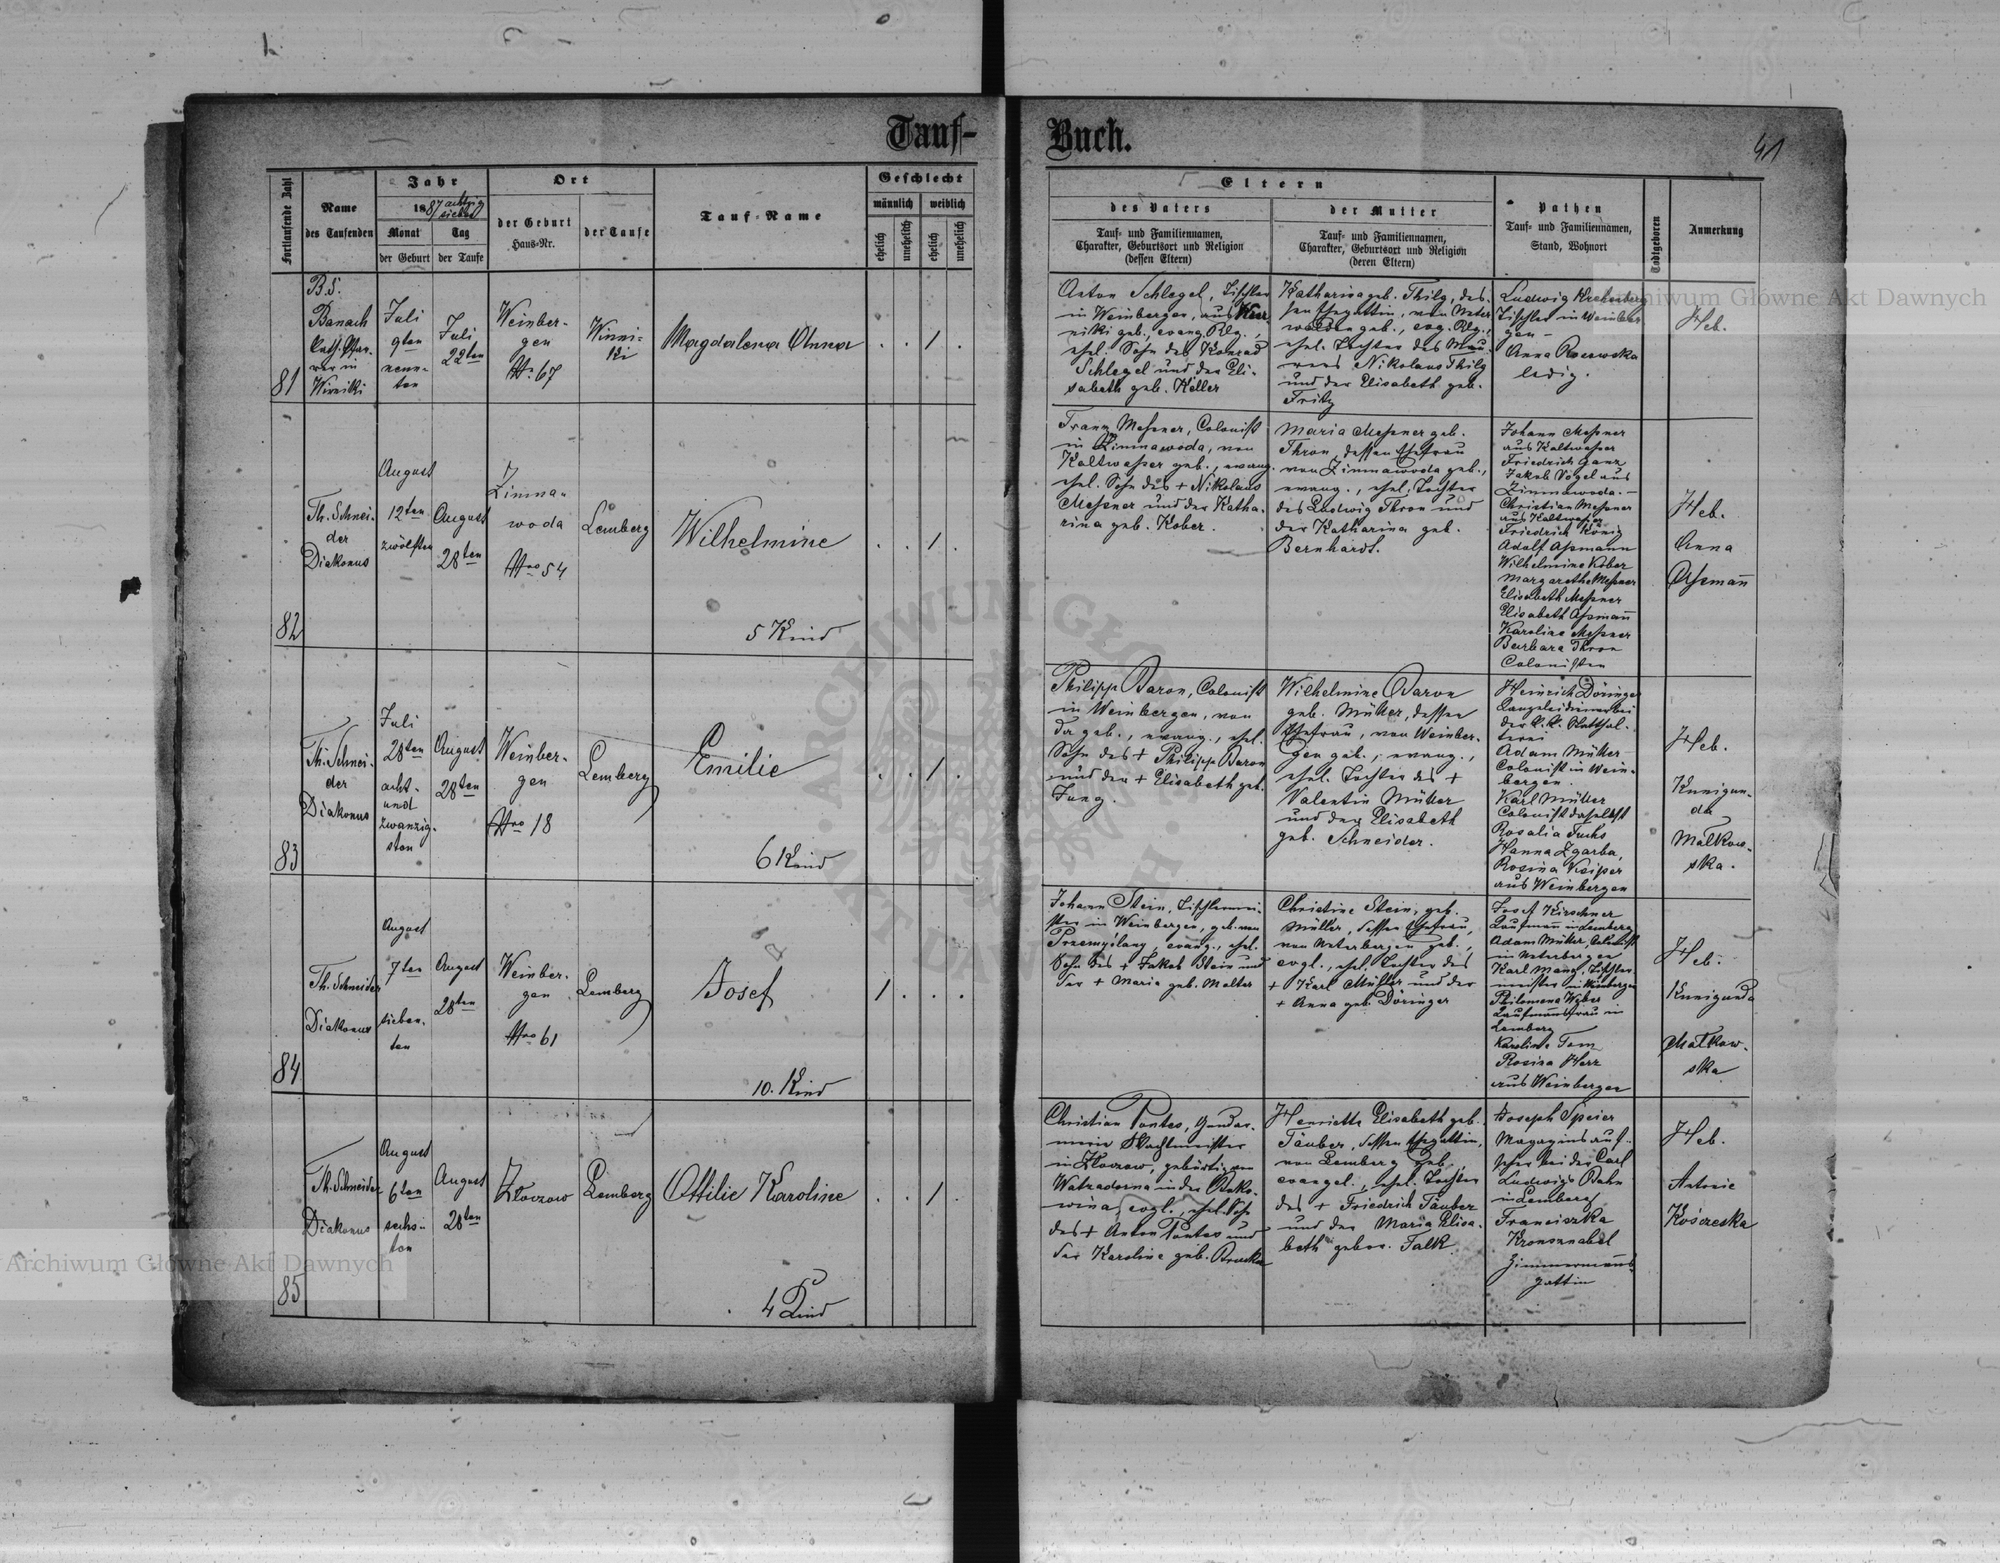 Tauf-
Buch.
41
Fortlaufende Zahl
Name
des Taufenden
Jahr
1887 achtzig
sieben
Monat
der Geburt
Tag
der Taufe
Ort
der Geburt
Haus-Nr.
der Taufe
Tauf-Name
Geschlecht
männlich
weiblich
ehelich
unehelich
ehelich
unehelich
Eltern
des Vaters
Tauf- und Familiennamen,
Charakter, Geburtsort und Religion
(dessen Eltern)
der Mutter
Tauf- und Familiennamen,
Charakter, Geburtsort und Religion
(deren Eltern)
Pathen
Tauf- und Familiennamen,
Stand, Wohnort
Todtgeboren
Anmerkung
81
Banach
kath. Pfar-
rer in
Winniki
Juli
9ten
neun-
ten
Juli
22ten
Weinber-
gen
Nr. 67
Winni-
ki
Magdalena Anna
. . 1 .
Anton Schlegel, Tischler
in Weinbergen, aus
niki geb., evang. Rlg.,
ehel. Sohn des Konrad
Schlegel und der Eli-
sabeth geb. Keller
Katharina geb. Thilg, des-
sen Ehegattin, von Unter-
walden geb., evg. Rlg.,
ehel. Tochter des Mau-
rers Nikolaus Thilg
und der Elisabeth geb.
Fritz
Ludwig
Tischler in Weinber-
gen –
Anna
ledig.
Heb.
82
Th. Schnei-
der
Diakonus
August
12ten
zwölften
August
28ten
Zimna-
woda
Nro 54
Lemberg
Wilhelmine
5 Kind
. . 1 .
Franz Meßner, Colonist
in Zimnawoda, von
Kaltwasser geb., evang.
ehel. Sohn des + Nikolaus
Meßner und der Katha-
rina geb. Kober.
Maria Meßner geb.
Thron, dessen Ehefrau
von Zimnawoda geb.,
evang., ehel. Tochter
des Ludwig Thron und
der Katharina geb.
Bernhardt.
Johann Meßner
aus Kaltwasser
Friedrich Ganz
Jakob Vogel aus
Zimnawoda. –
Christian Meßner
aus Kaltwasser
Friedrich König
Adolf Aßmann
Wilhelmine Kober
Margarethe Meßner
Elisabeth Meßner
Elisabeth Aßmann
Karoline Meßner
Barbara Thron
Colonisten
Heb.
Anna
Assmann
83
Th. Schnei-
der
Diakonus
Juli
28ten
acht-
und
zwanzig-
sten
August
28ten
Weinber-
gen
Nro 18
Lemberg
Emilie
6 Kind
. . 1 .
Philipp Baron, Colonist
in Weinbergen, von
da geb., evang., ehel.
Sohn des + Philipp Baron
und der + Elisabeth geb.
Jung.
Wilhelmine Baron
geb. Müller, dessen
Ehefrau, von Weinber-
gen geb., evang.,
ehel. Tochter des +
Valentin Müller
und der Elisabeth
geb. Schneider.
Heinrich Döringer
Kanzleidiener bei
der k. k. Statthal-
terei
Adam Müller
Colonist in Wein-
bergen
Karl Müller
Colonist daselbst
Rosalia Fuchs
Hanna Zgarba,
Rosina
aus Weinbergen
Heb.
Kunigun-
da
Malkow-
ska.
84
Th. Schneider
Diakonus
August
7ten
sieben-
ten
August
28ten
Weinber-
gen
Nro 61
Lemberg
Josef
10. Kind
1 . . .
Johann Stein, Tischlermei-
ster in Weinbergen, geb. von
Przemyślany, evang., ehel.
Sohn des + Jakob Stein und
der + Maria geb. Malter
Christine Stein, geb.
Müller, dessen Ehefrau,
von Unterbergen geb.,
evgl., ehel. Tochter des
+ Karl Müller und der
+ Anna geb. Döringer
Josef Kirschner
Kaufmann in Lemberg
Adam Müller, Colonist
in Unterbergen
Karl Manz, Tischler-
meister in Weinbergen
Philomena Weber
Kaufmannsfrau in
Lemberg
Karoline Tom
Rosina Herz
aus Weinbergen
Heb.
Kunigunda
Malkow-
ska
85
Th. Schneider
Diakonus
August
6ten
sechs-
ten
August
28ten
Złoczow
Lemberg
Ottilie Karoline
4 Kind
. . 1 .
Christian Pontes, Gendar-
merie Wachtmeister
in Złoczow, gebürtig von
Watradorna in der Buko-
wina, evgl., ehel. Sohn
des + Anton Pontes und
der Karoline geb.
Henriette Elisabeth geb.
Täuber, dessen Ehegattin,
von Lemberg geb.
evangel., ehel. Tochter
des + Friedrich Täuber
und der Maria Elisa-
beth gebor. Falk.
Joseph Speier
Magazinsauf-
seher bei der Carl
Ludwigs Bahn
in Lemberg
Franciszka
Kronenabel
Zimmermanns-
gattin
Heb.
Antonie
Archiwum Główne Akt Dawnych
Archiwum Główne Akt Dawnych